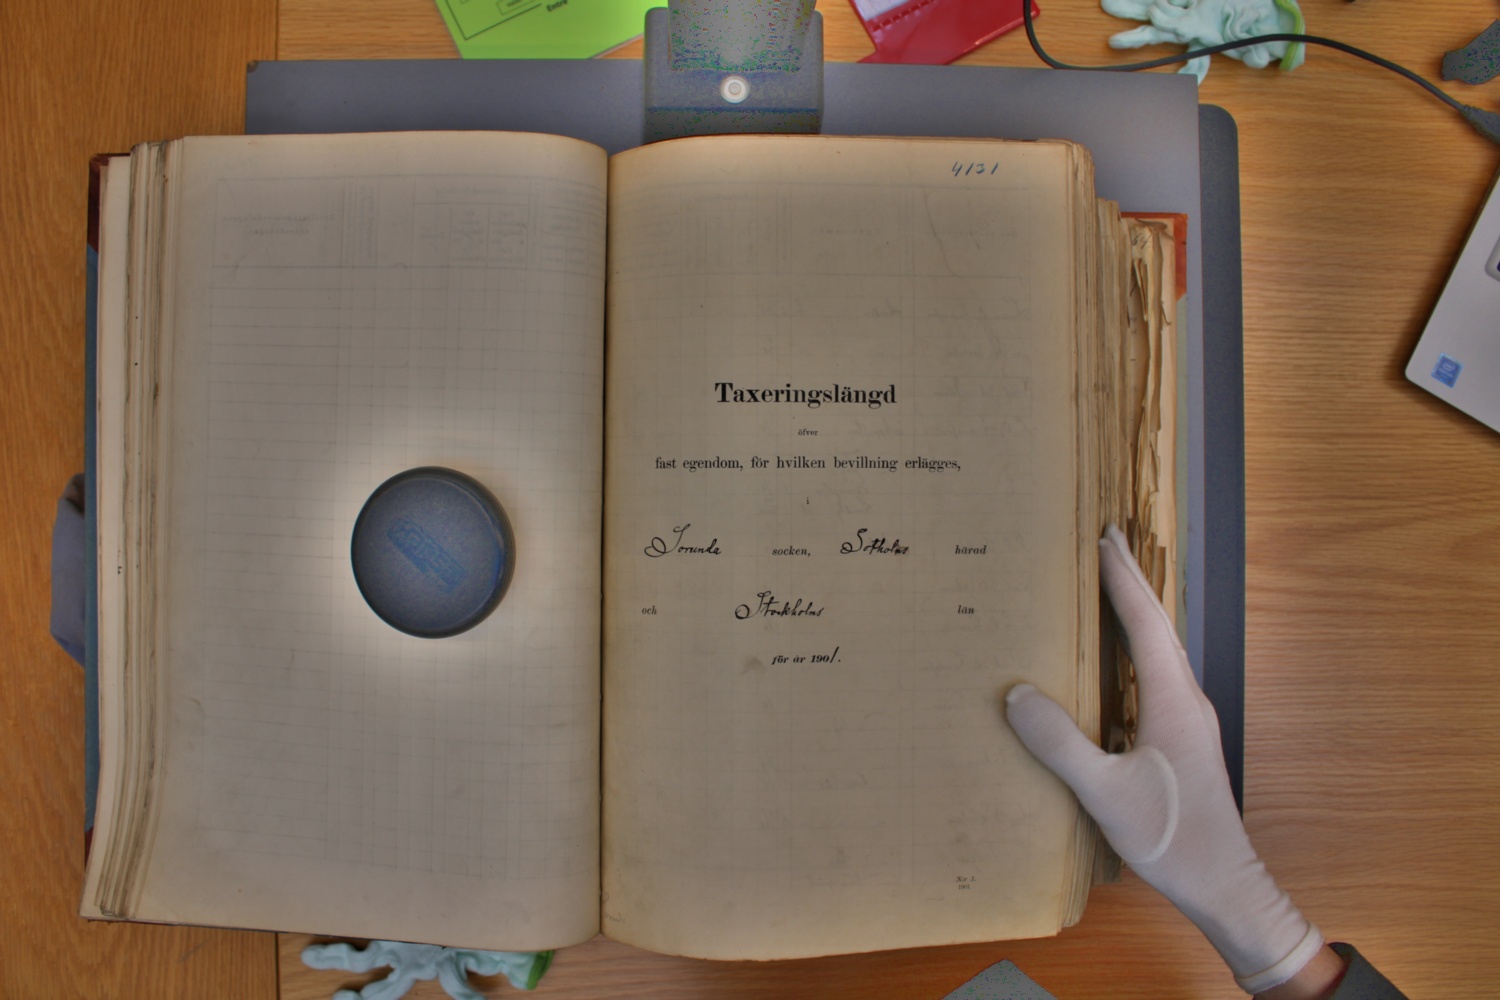 Entré
4131
Taxeringslängd
öfver
fast egendom, för hvilken bevillning erlägges,
i
Sorunda socken, Sotholms härad
och Stockholms län
för år 1901.
N:r 1.
1901